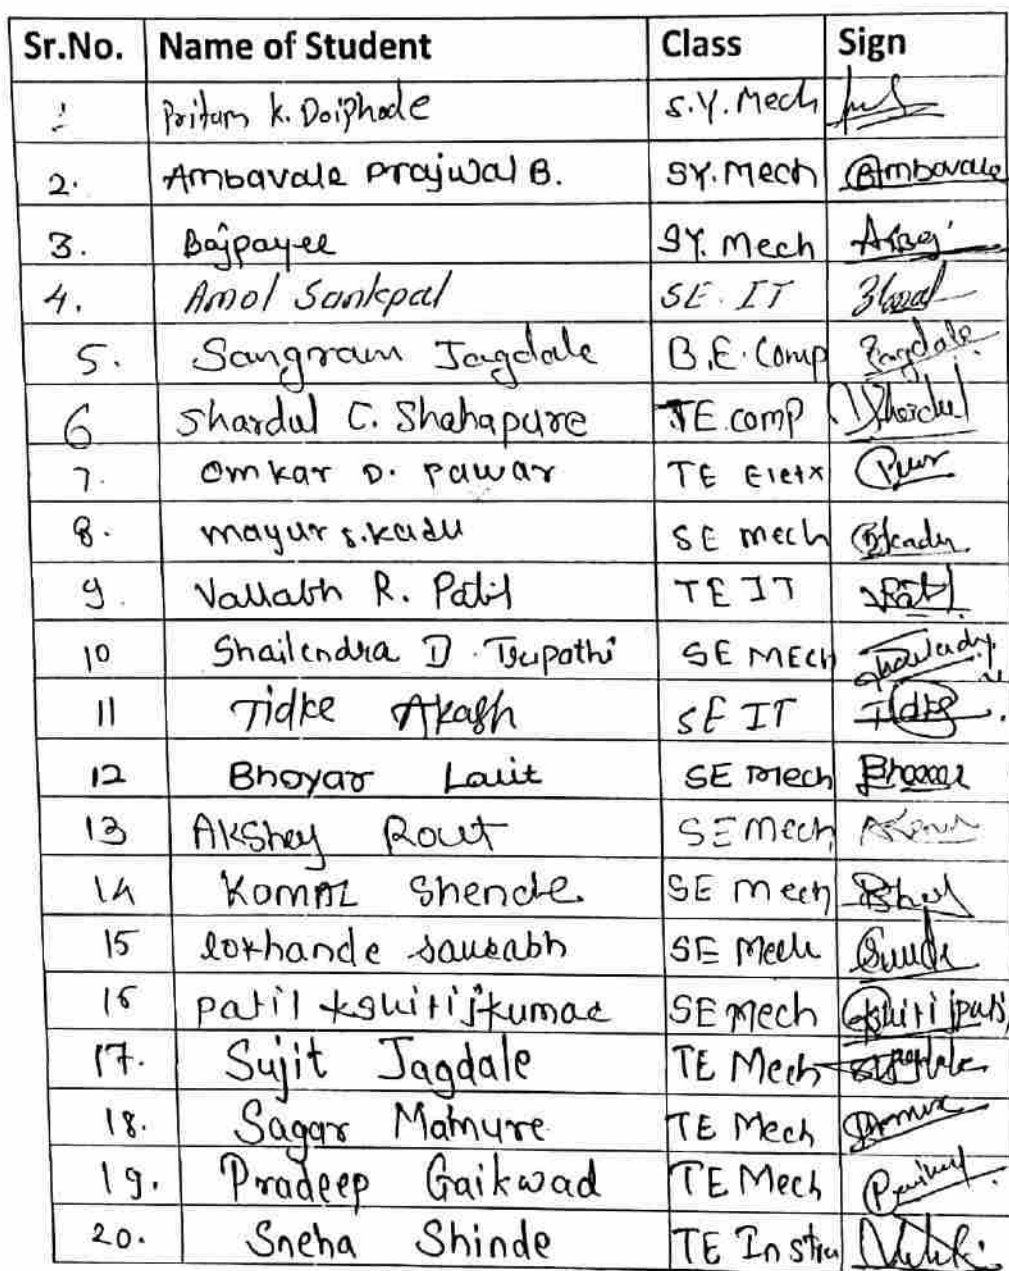 Sr.No. Name of Student Class Sign
1 Pritam K. Doiphode S.Y. Mech
2. Ambavale Prajwal B. SY. Mech Ambavale
3. Bajpayee SY. Mech
4. Amol Sankpal SE. IT
5. Sangram Jagdale B.E. Comp Jagdale
6 Shardul C. Shahapure TE. comp Shardul
7. Omkar D. Pawar TE Eletx
8. mayur s. kadu SE mech
9. Vallabh R. Patil TE IT
10 Shailendra D. Tripathi SE MECH
11 Tidke Akash SE IT Tidke
12 Bhoyar Lalit SE Mech
13 Akshey Rout SE Mech
14 Komal Shende SE Mech
15 lokhande saurabh SE Mech
16 patil kshitijkumar SE Mech
17. Sujit Jagdale TE Mech
18. Sagar Mamure TE Mech
19. Pradeep Gaikwad TE Mech
20. Sneha Shinde TE Instru